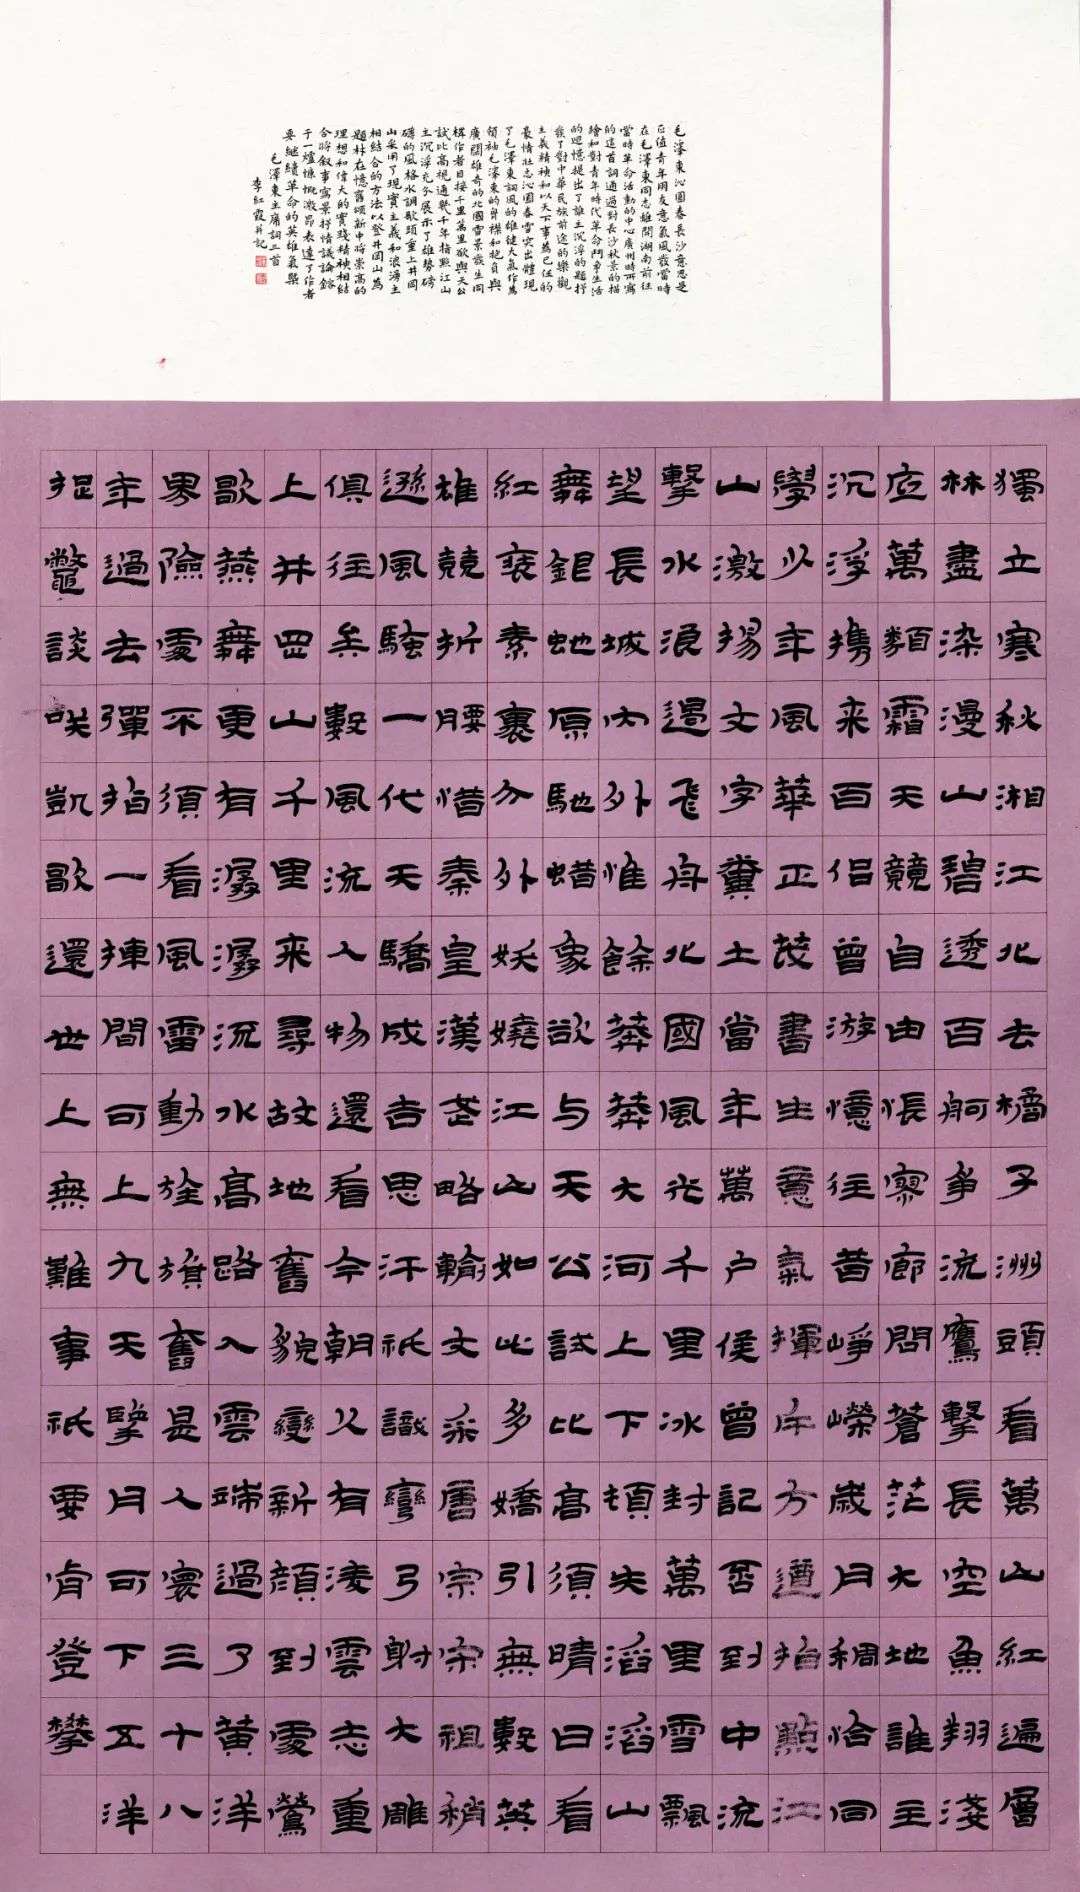 毛澤東沁園春長沙意思是
正值青年朋友意氣風發當時
在毛澤東同志離開湖南前往
當時革命活動的中心廣州時所寫
的這首詞通過對長沙秋景的描
繪和對青年時代革命鬥爭生活
的迴憶提出了誰主沉浮的題抒
發了對中華民族前途的樂觀
主義精神和以天下事為己任的
豪情壯志沁園春雪突出體現
了毛澤東詞風的雄健大氣作為
領袖毛澤東的胸襟和抱負與
廣闊雄奇的北國雪景發生同
構作者目接千里萬里欲與天公
試比高視通幾千年指點江山
主沉浮充分展示了雄勢磅
礴的風格水調歌頭重上井岡
山采用了現實主義和浪湧主
相結合的方法以登井岡山為
題材在憶舊頌新中將崇高的
理想和偉大的實踐精神相結
合將敘事寫景抒情議論鎔
于一爐慷慨激昂表達了作者
要繼續革命的英雄氣概
毛澤東主席詞三首
李紅霞并記
獨立寒秋湘江北去橘子洲頭看萬山紅遍層
林盡染漫山碧透百舸爭流鷹擊長空魚翔淺
底萬類霜天競自由悵寥廊問蒼茫大地誰主
沉浮攜來百侶曾游憶往昔崢嶸歲月稠恰同
學少年風華正茂書生意氣揮斥方遒指點江
山激揚文字糞土當年萬戶侯曾記否到中流
擊水浪遏飛舟北國風光千里冰封萬里雪飄
望長城內外惟餘莽莽大河上下頓失滔滔山
舞銀蛇原馳蠟象欲与天公試比高須晴日看
紅裝素裹分外妖嬈江山如此多嬌引無數英
雄競折腰惜秦皇漢武略輸文采唐宗宋祖稍
遜風騷一代天驕成吉思汗祇識彎弓射大雕
俱往矣數風流人物還看今朝久有凌雲志重
上井岡山千里來尋故地舊貌變新顏到處鶯
歌燕舞更有潺潺流水高路入雲端過了黃洋
界險處不須看風雷動旌旗奮是人寰三十八
年過去彈指一揮間可上九天攬月可下五洋
捉鱉談笑凱歌還世上無難事祇要肯登攀